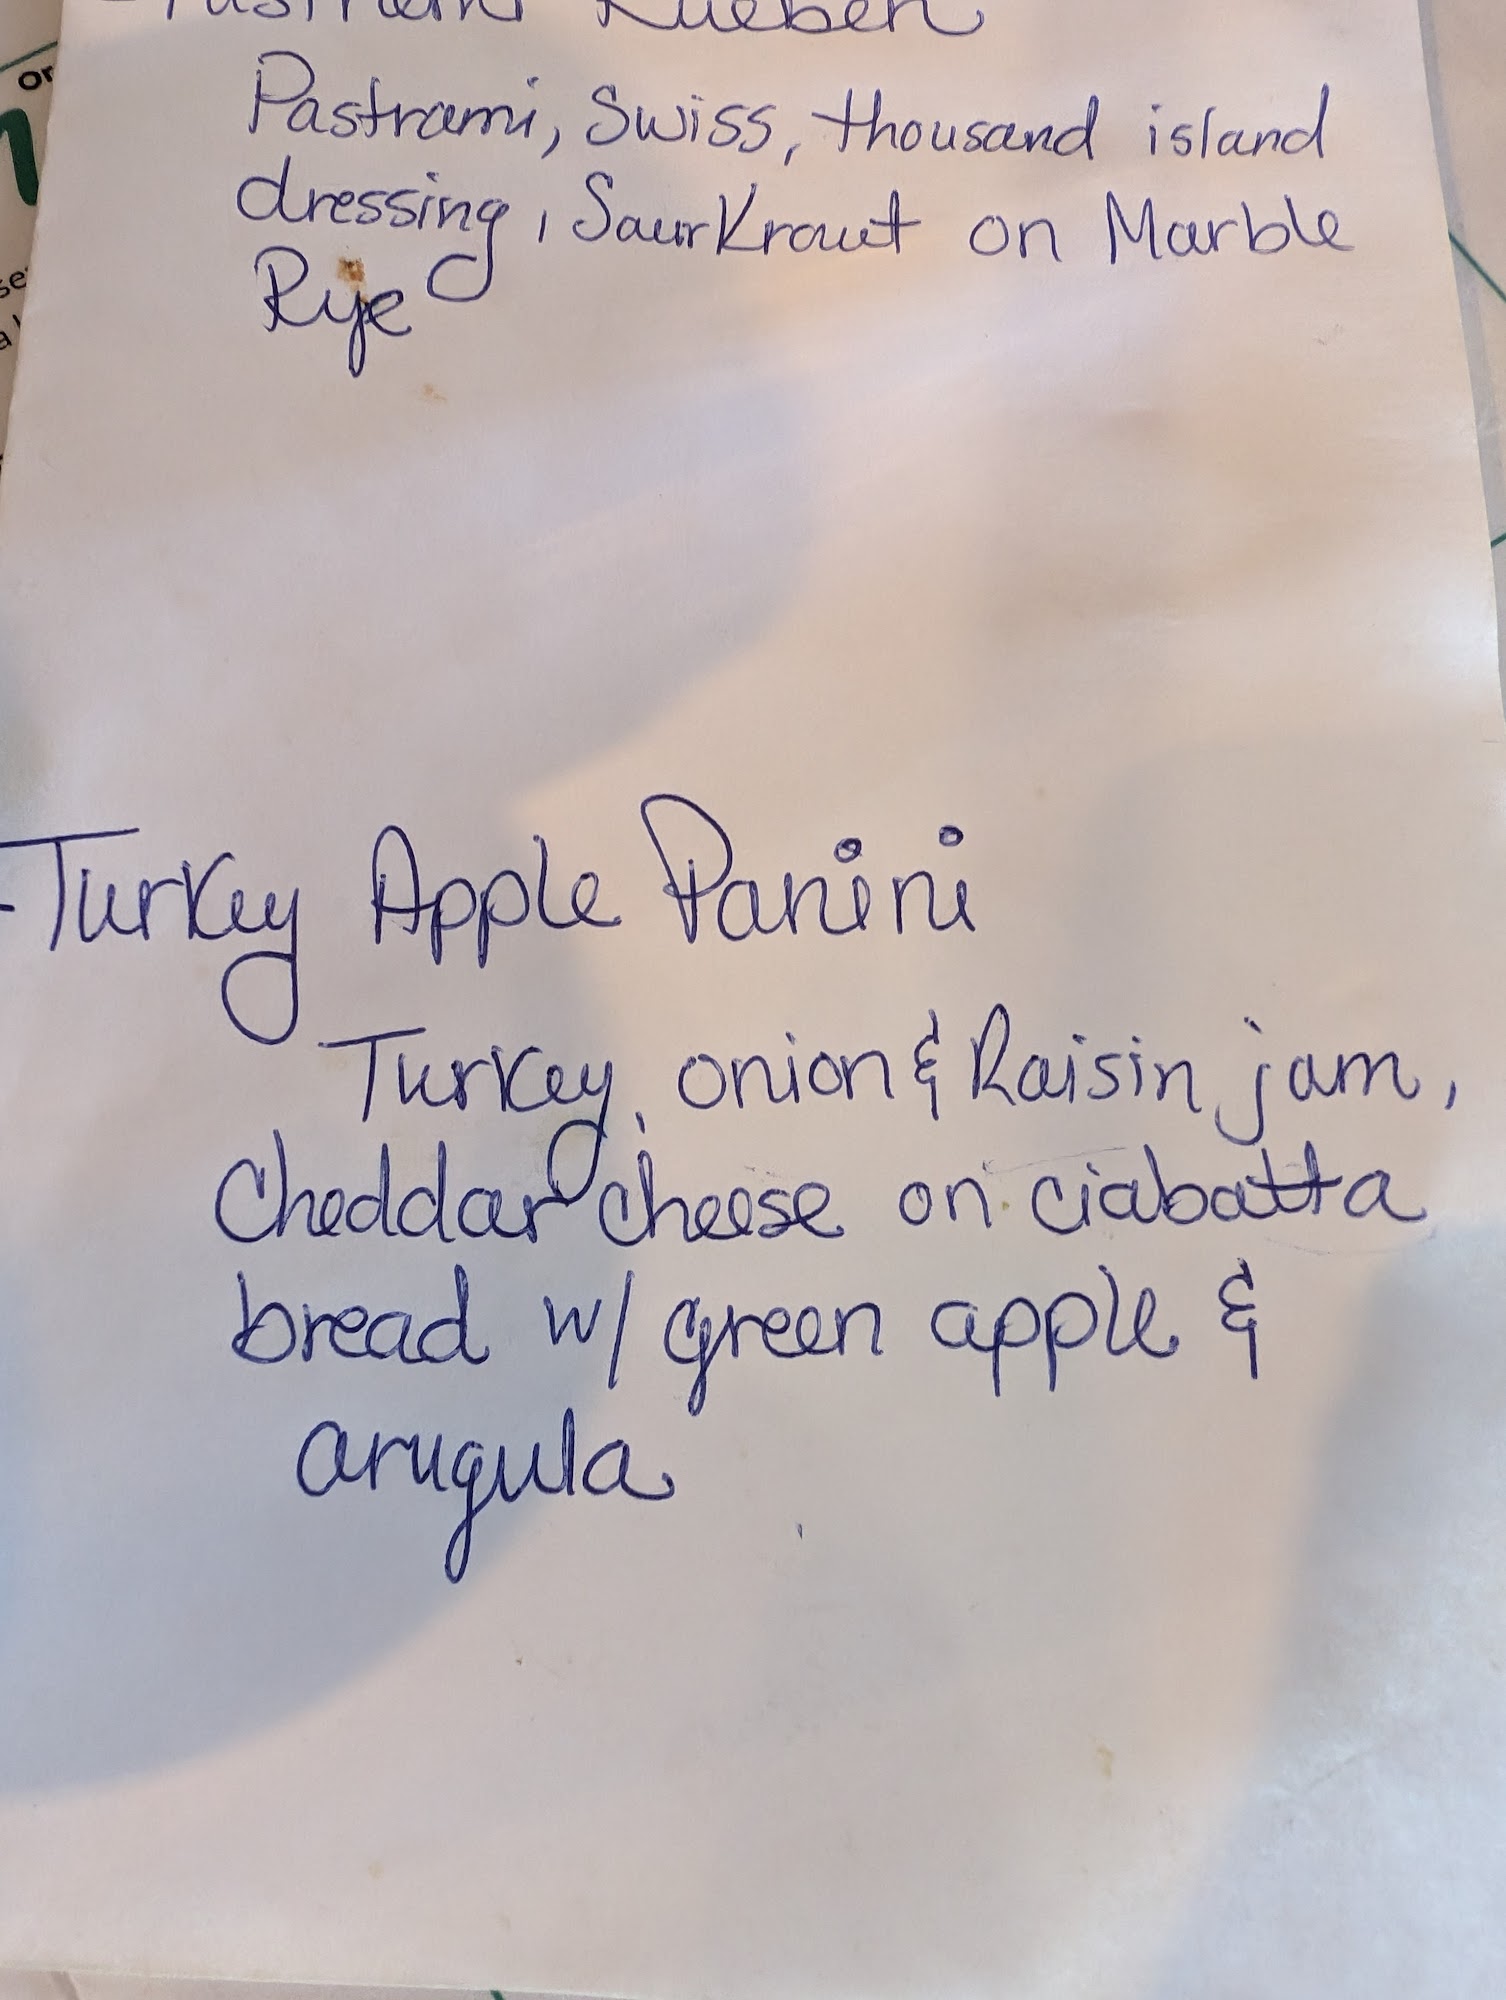 - Pastrami Rueben
Pastrami, Swiss, thousand island
dressing, SaurKraut on Marble
Rye
- Turkey Apple Panini
Turkey, onion & Raisin jam,
Cheddar cheese on ciabatta
bread w/ green apple &
arugula
or